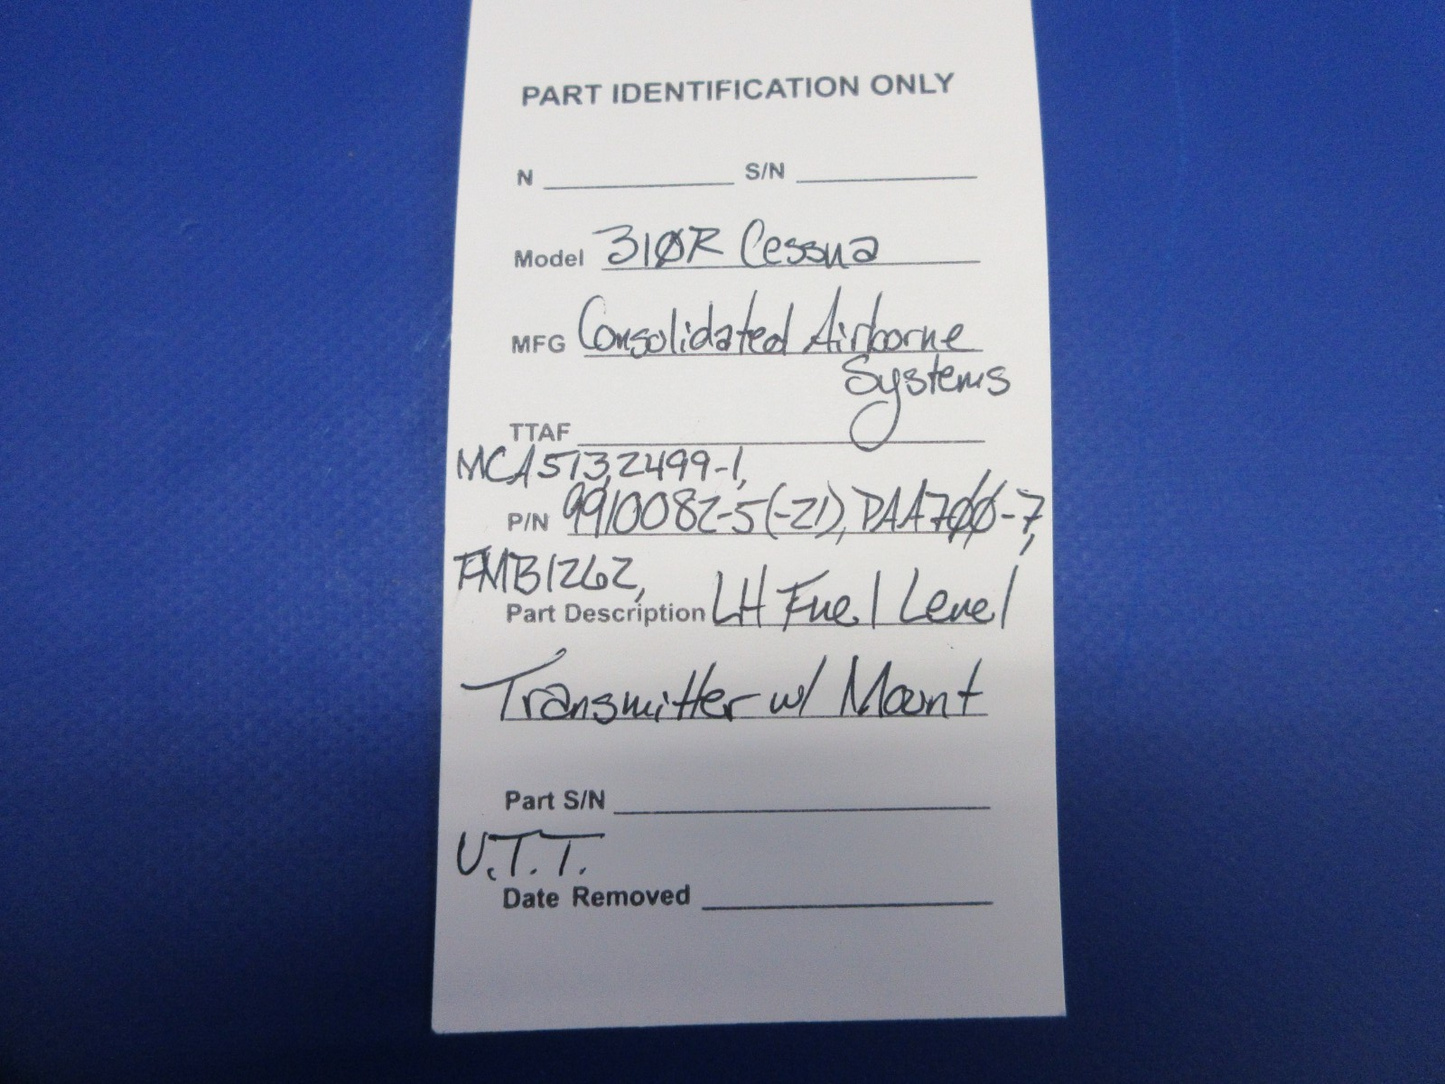 PART IDENTIFICATION ONLY
N S/N
Model 310R Cessna
MFG Consolidated Airborne
Systems
TTAF
MCA513,2499-1,
P/N 9910082-5(-21), DAA700-7,
FMB1262,
Part Description LH Fuel Level
Transmitter w/ Mount
Part S/N
U.T.T.
Date Removed